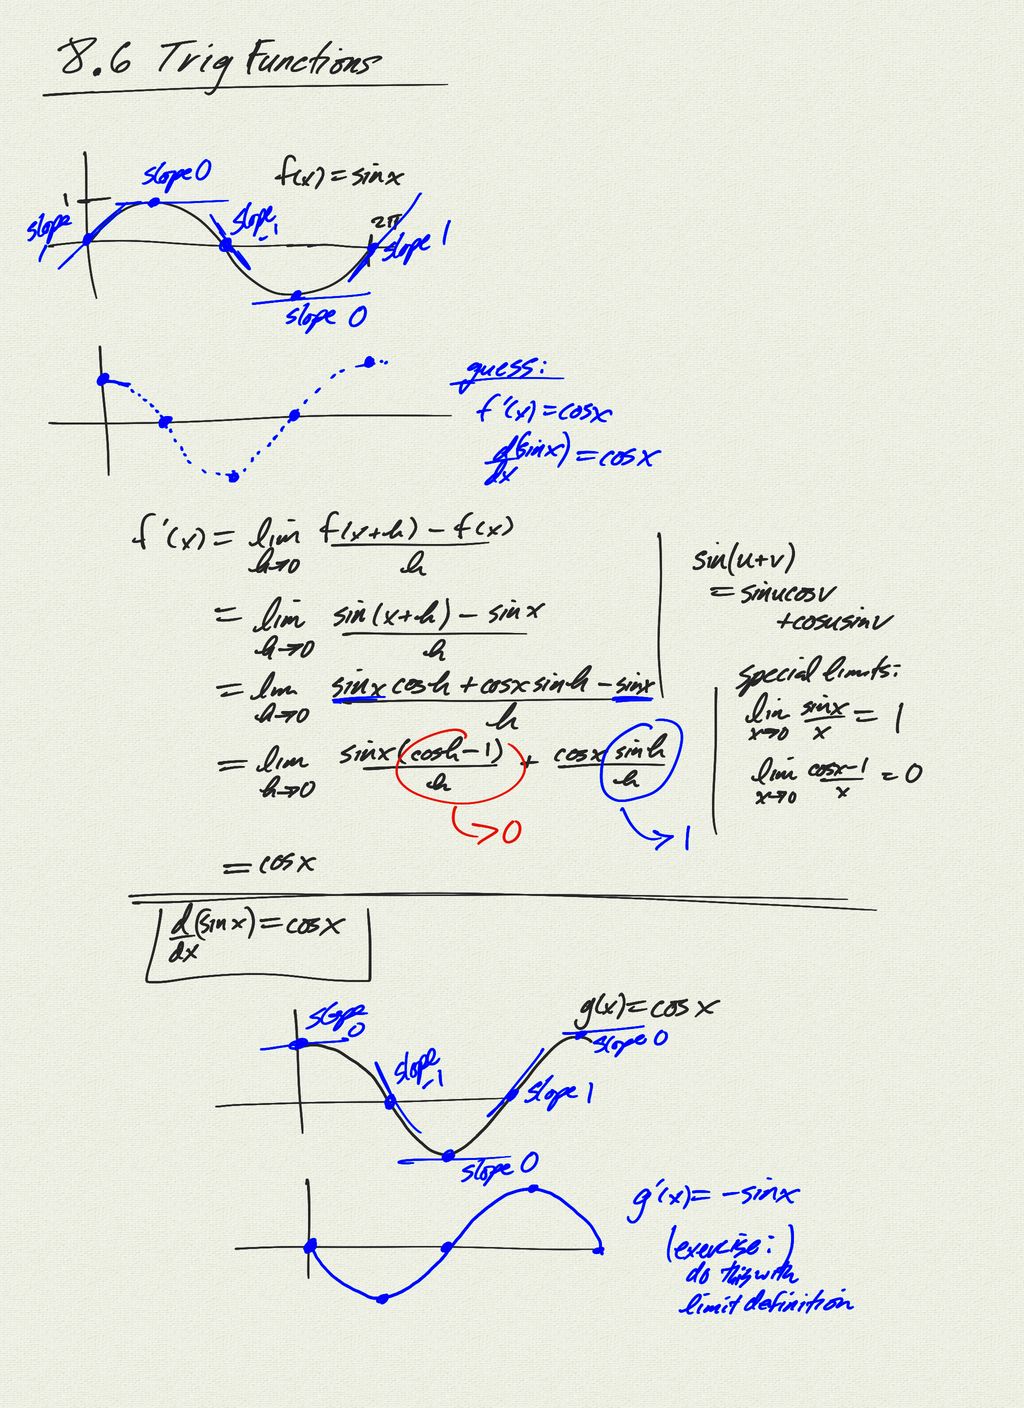 8.6 Trig Functions
slope 0
f(x) = sin x
1
slope 1
slope -1
2π
slope 1
slope 0
guess:
f'(x) = cos x
d/dx (sin x) = cos x
f'(x) = lim h→0 (f(x+h) - f(x))/h
= lim h→0 (sin(x+h) - sin x)/h
= lim h→0 (sin x cos h + cos x sin h - sin x)/h
= lim h→0 sin x (cos h - 1)/h + cos x sin h/h
→0
→1
= cos x
sin(u+v)
= sin u cos v
+ cos u sin v
special limits:
lim x→0 sin x/x = 1
lim x→0 (cos x - 1)/x = 0
d/dx (sin x) = cos x
slope 0
g(x) = cos x
slope 0
slope -1
slope 1
slope 0
g'(x) = - sin x
(exercise:)
do this with
limit definition